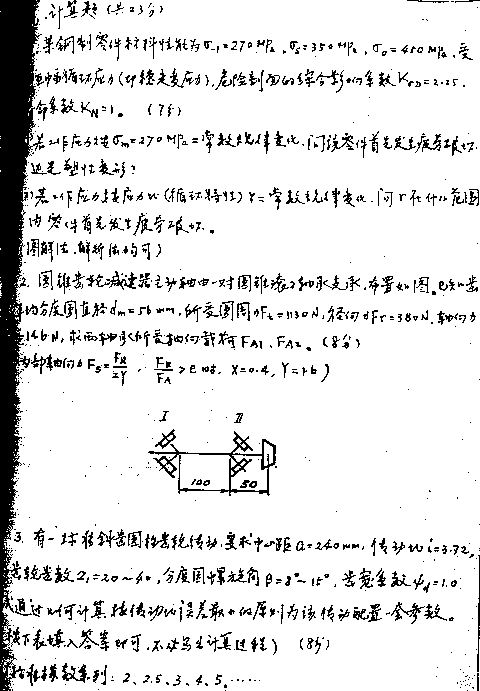 计算题（共23分）
某钢制零件材料性能为σ-1=270MPa，σs=350MPa，σ0=450MPa，受
循环应力（即稳定变应力），危险剖面的综合影响系数KσD=2.25，
寿命系数KN=1。（7分）
若工作应力按σm=270MPa=常数规律变化，问该零件首先发生疲劳破坏，
还是塑性变形？
若工作应力按应力比（循环特性）r=常数规律变化，问r在什么范围
内零件首先发生疲劳破坏。
图解法、解析法均可）
2. 圆锥齿轮减速器主动轴由一对圆锥滚子轴承支承，布置如图。已知齿
均分度圆直径dm=56mm，所受圆周力Ft=1130N，径向力Fr=380N，轴向力
=146N，求两轴承所受轴向载荷FA1、FA2。（8分）
内部轴向力Fs=FR/2Y，FR/FA>e时，X=0.4，Y=1.6）
I II
100 50
3. 有一标准斜齿圆柱齿轮传动，要求中心距a=240mm，传动比i=3.72，
齿轮齿数Z1=20～40，分度圆螺旋角β=8°～15°，齿宽系数ψd=1.0
通过 计算按传动比误差最小的原则为该传动配置一套参数。
按下表填入答案即可，不必写出计算过程）（8分）
标准模数系列：2、2.5、3、4、5、……